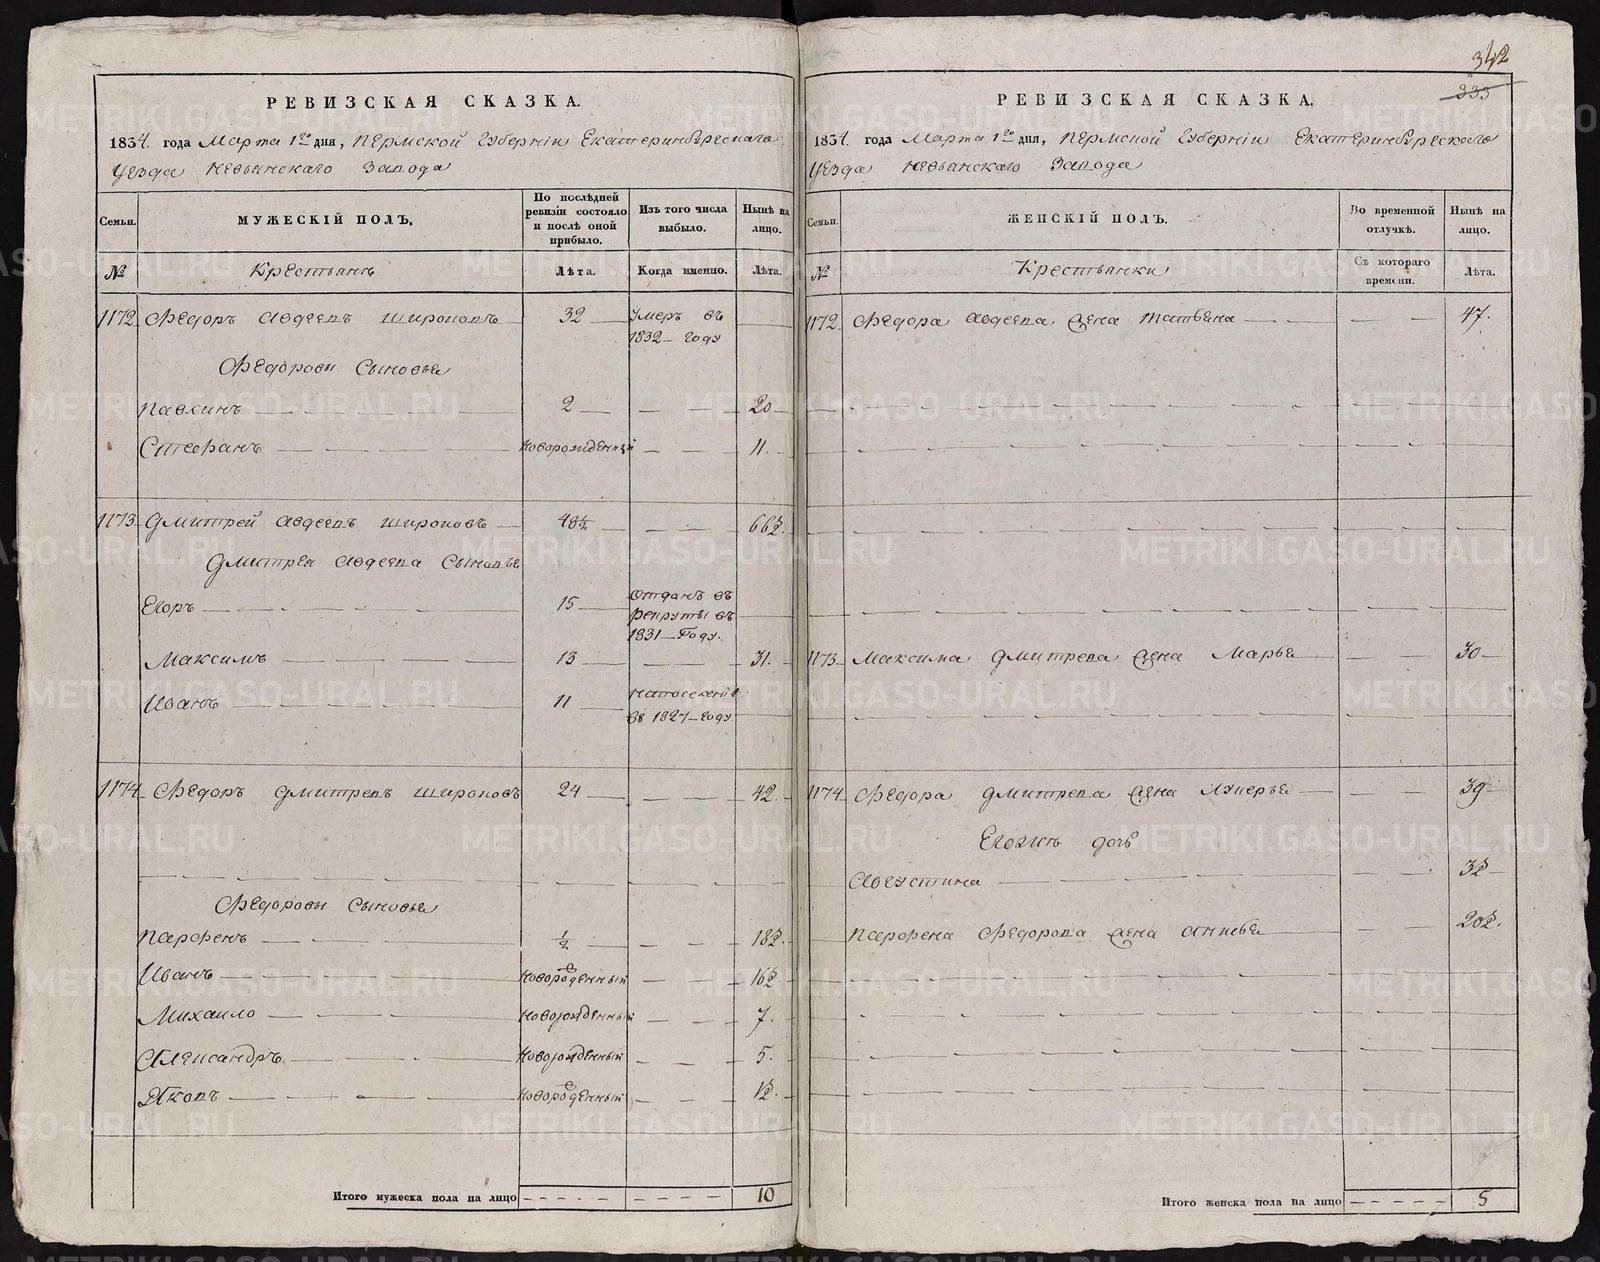 РЕВИЗСКАЯ СКАЗКА.
1834. года Марта 1го дня, Пермской Губерніи Екатеринбургскаго
Уезда Невьянскаго Завода
Семьи.
МУЖЕСКІЙ ПОЛЪ.
По послѣдней ревизіи состояло и послѣ оной прибыло.
Изъ того числа выбыло.
Нынѣ на лицо.
№
Крестьянъ
Лѣта.
Когда именно.
Лѣта.
1172 Федоръ Авдеевъ Широковъ 32 умеръ въ 1832 году
Федоровы Сыновья
Павлинъ 2 20
Стефанъ новорожденный 11.
1173 Дмитрей Авдеевъ Широковъ 48½ 66½
Дмитрея Авдеева Сыновья
Егоръ 15 Отданъ въ рекруты въ 1831 Году.
Максимъ 13 31.
Иванъ 11 въ 1827 году
1174 Федоръ Дмитревъ Широковъ 24 42.
Федоровы Сыновья
Парфенъ ½ 18½.
Иванъ новорожденный 16½
Михаило новорожденный 7.
Александръ новорожденный 5.
Яковъ новорожденный 1½.
Итого мужеска пола на лицо 10
342
333
РЕВИЗСКАЯ СКАЗКА.
1834. года Марта 1го дня, Пермской Губерніи Екатеринбургскаго
Уезда Невьянскаго Завода
Семьи.
ЖЕНСКІЙ ПОЛЪ.
Во временной отлучкѣ.
Нынѣ на лицо.
№
Крестьянки
Съ котораго времени.
Лѣта.
1172 Федора Авдеева жена Татьяна 47.
1173 Максима Дмитрева жена Марья 30
1174 Федора Дмитрева жена Лукерья 39
Еговѣ дочь
Августина 3½
Парфена Федорова жена 20½.
Итого женска пола на лицо 5
METRIKI.GASO-URAL.RU